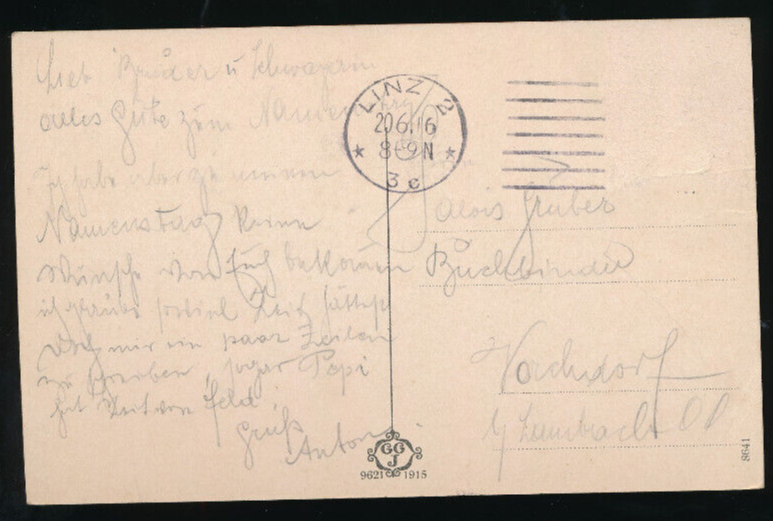 Lieb Bruder u Schwägerin
alles Gute zum Namenstag
Ich habe aber zu meinem
Namenstag keine
Wünsche von Euch bekommen
ich glaube soviel Zeit hättest
mir ein paar Zeilen
zu schreiben, sogar Pepi
hat Zeit von Feld
Gruß
Anton.
LINZ 2
20.6.16
8-9N
★ 3c ★
Alois Gruber
Buchbinder
Vorchdorf
b/ Lambach OÖ
GGJ
9621 1915
8641